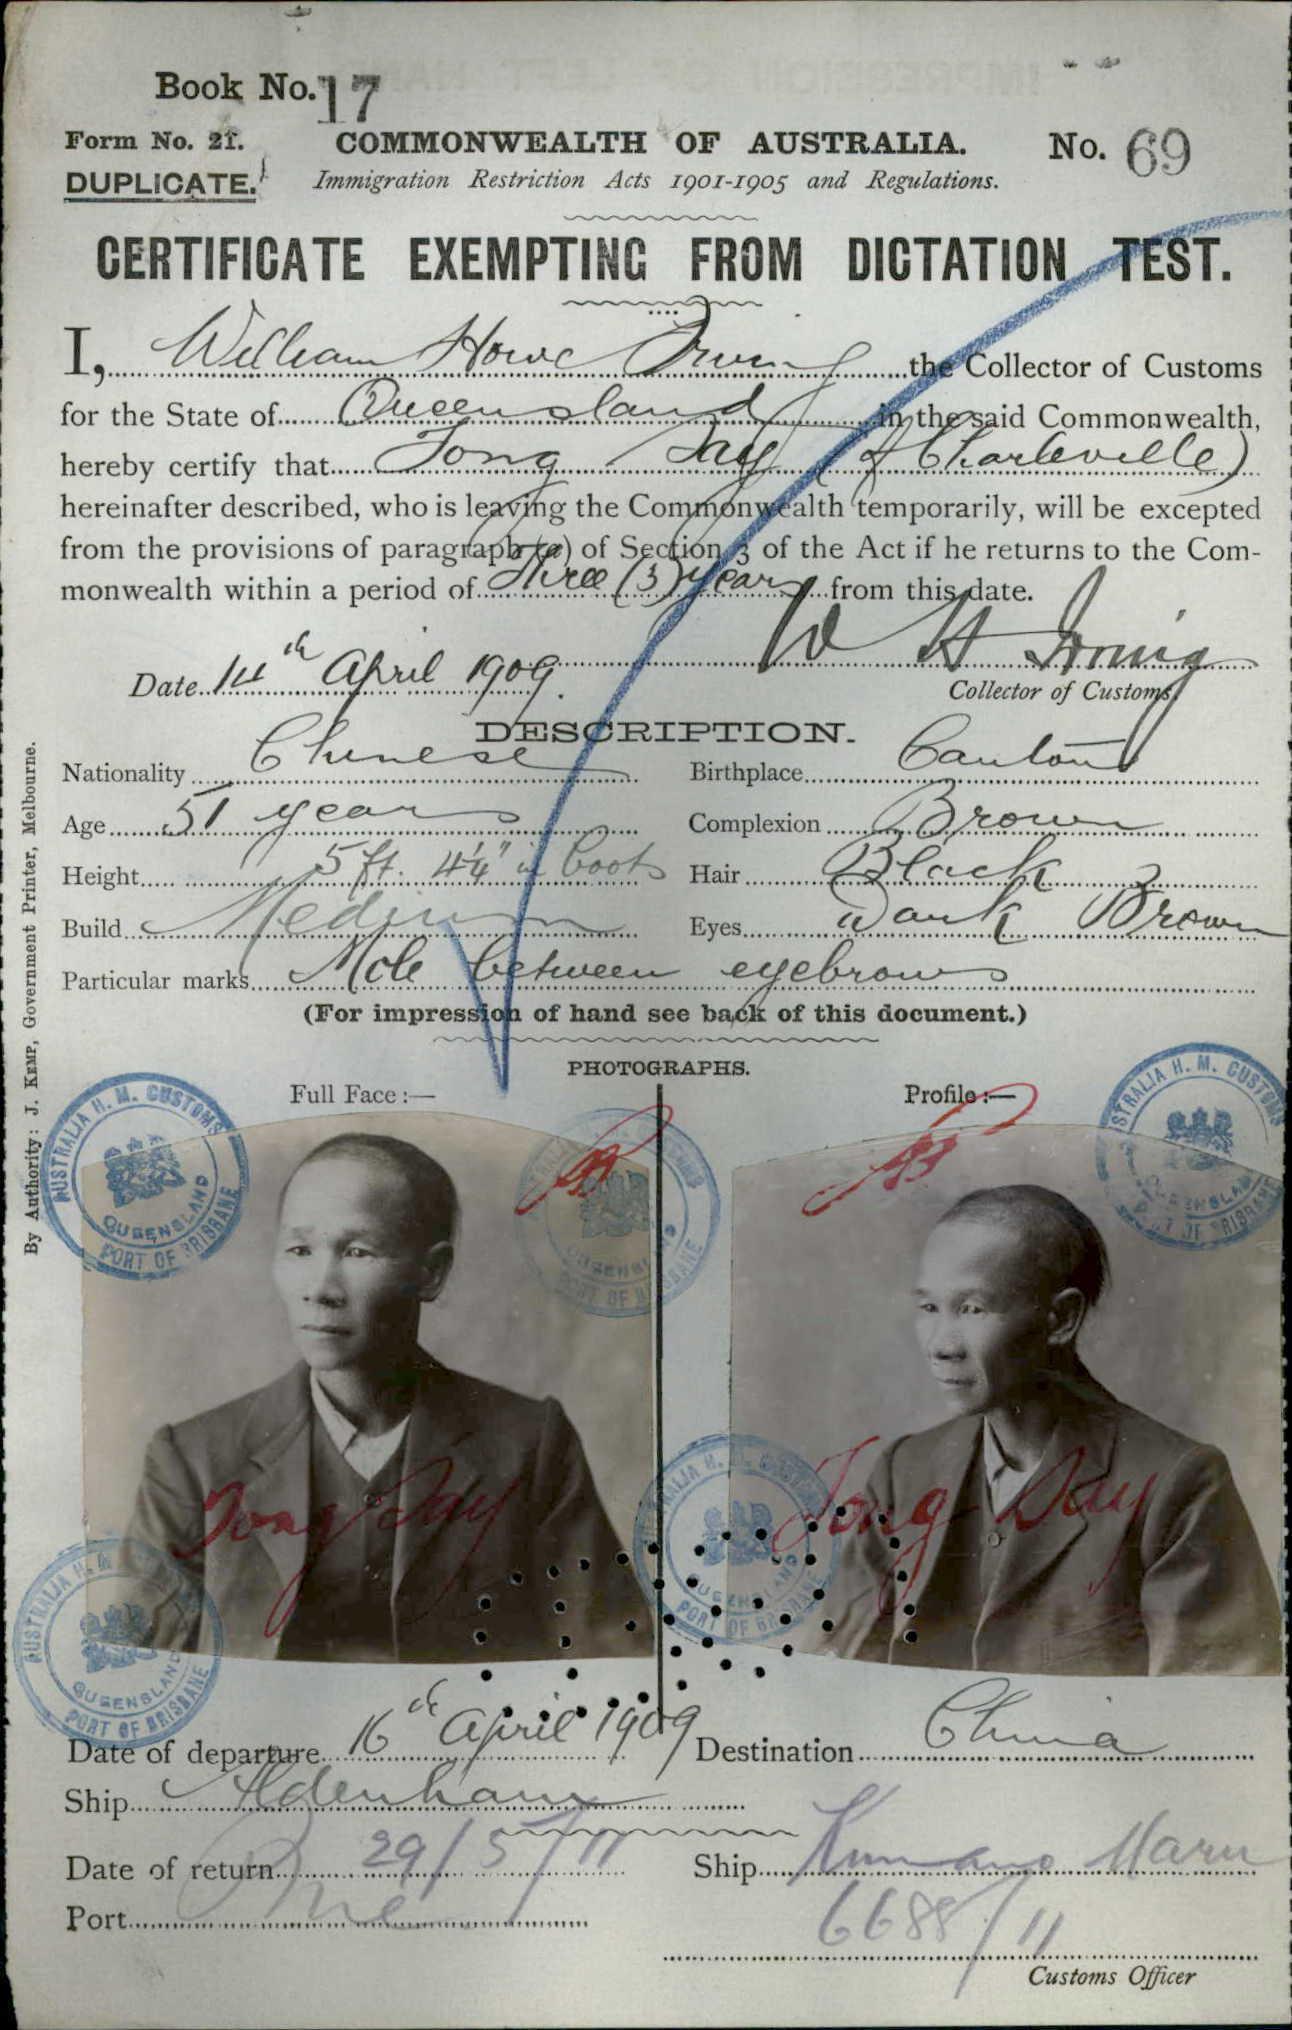 Book No. 17
Form No. 21. COMMONWEALTH OF AUSTRALIA. No. 69
DUPLICATE. Immigration Restriction Acts 1901-1905 and Regulations.
CERTIFICATE EXEMPTING FROM DICTATION TEST.
I, William Howe Irving the Collector of Customs
for the State of Queensland in the said Commonwealth,
hereby certify that Tong Day (of Charleville)
hereinafter described, who is leaving the Commonwealth temporarily, will be excepted
from the provisions of paragraph (a) of Section 3 of the Act if he returns to the Com-
monwealth within a period of Three (3) years from this date.
W H Irving
Date 14th April 1909.
Collector of Customs
DESCRIPTION.
Nationality Chinese Birthplace Canton
Age 51 years Complexion Brown
Height 5 ft. 4¼" in boots Hair Black
Build Medium Eyes Dark Brown
Particular marks Mole between eyebrows
(For impression of hand see back of this document.)
PHOTOGRAPHS.
Full Face:— Profile:—
AUSTRALIA H. M. CUSTOMS QUEENSLAND PORT OF BRISBANE
AUSTRALIA H. M. CUSTOMS QUEENSLAND PORT OF BRISBANE
AUSTRALIA H. M. CUSTOMS QUEENSLAND PORT OF BRISBANE
Tong Day Tong Day
AUSTRALIA H. M. CUSTOMS QUEENSLAND PORT OF BRISBANE
AUSTRALIA H. M. CUSTOMS QUEENSLAND PORT OF BRISBANE
Date of departure 16th April 1909 Destination China
Ship Aldenham
Date of return 29/5/11 Ship Kumano Maru
Port Bne 6688/11
Customs Officer
By Authority: J. KEMP, Government Printer, Melbourne.